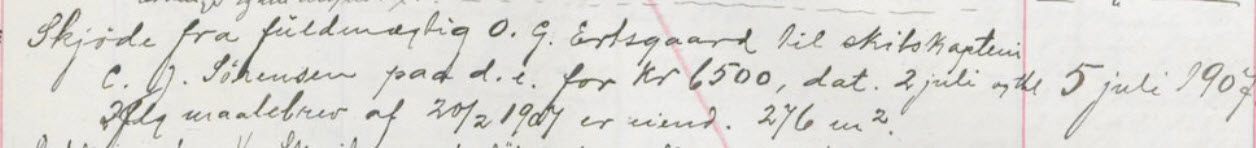 Skjöde fra fuldmægtig O. G. Ertsgaard til skibskaptein
C. J. Sörensen paa d. e. for Kr 6500, dat. 2 juli og thl 5 juli 1907
Iflg maalebrev af 20/2 1907 er eiend. 276 m².